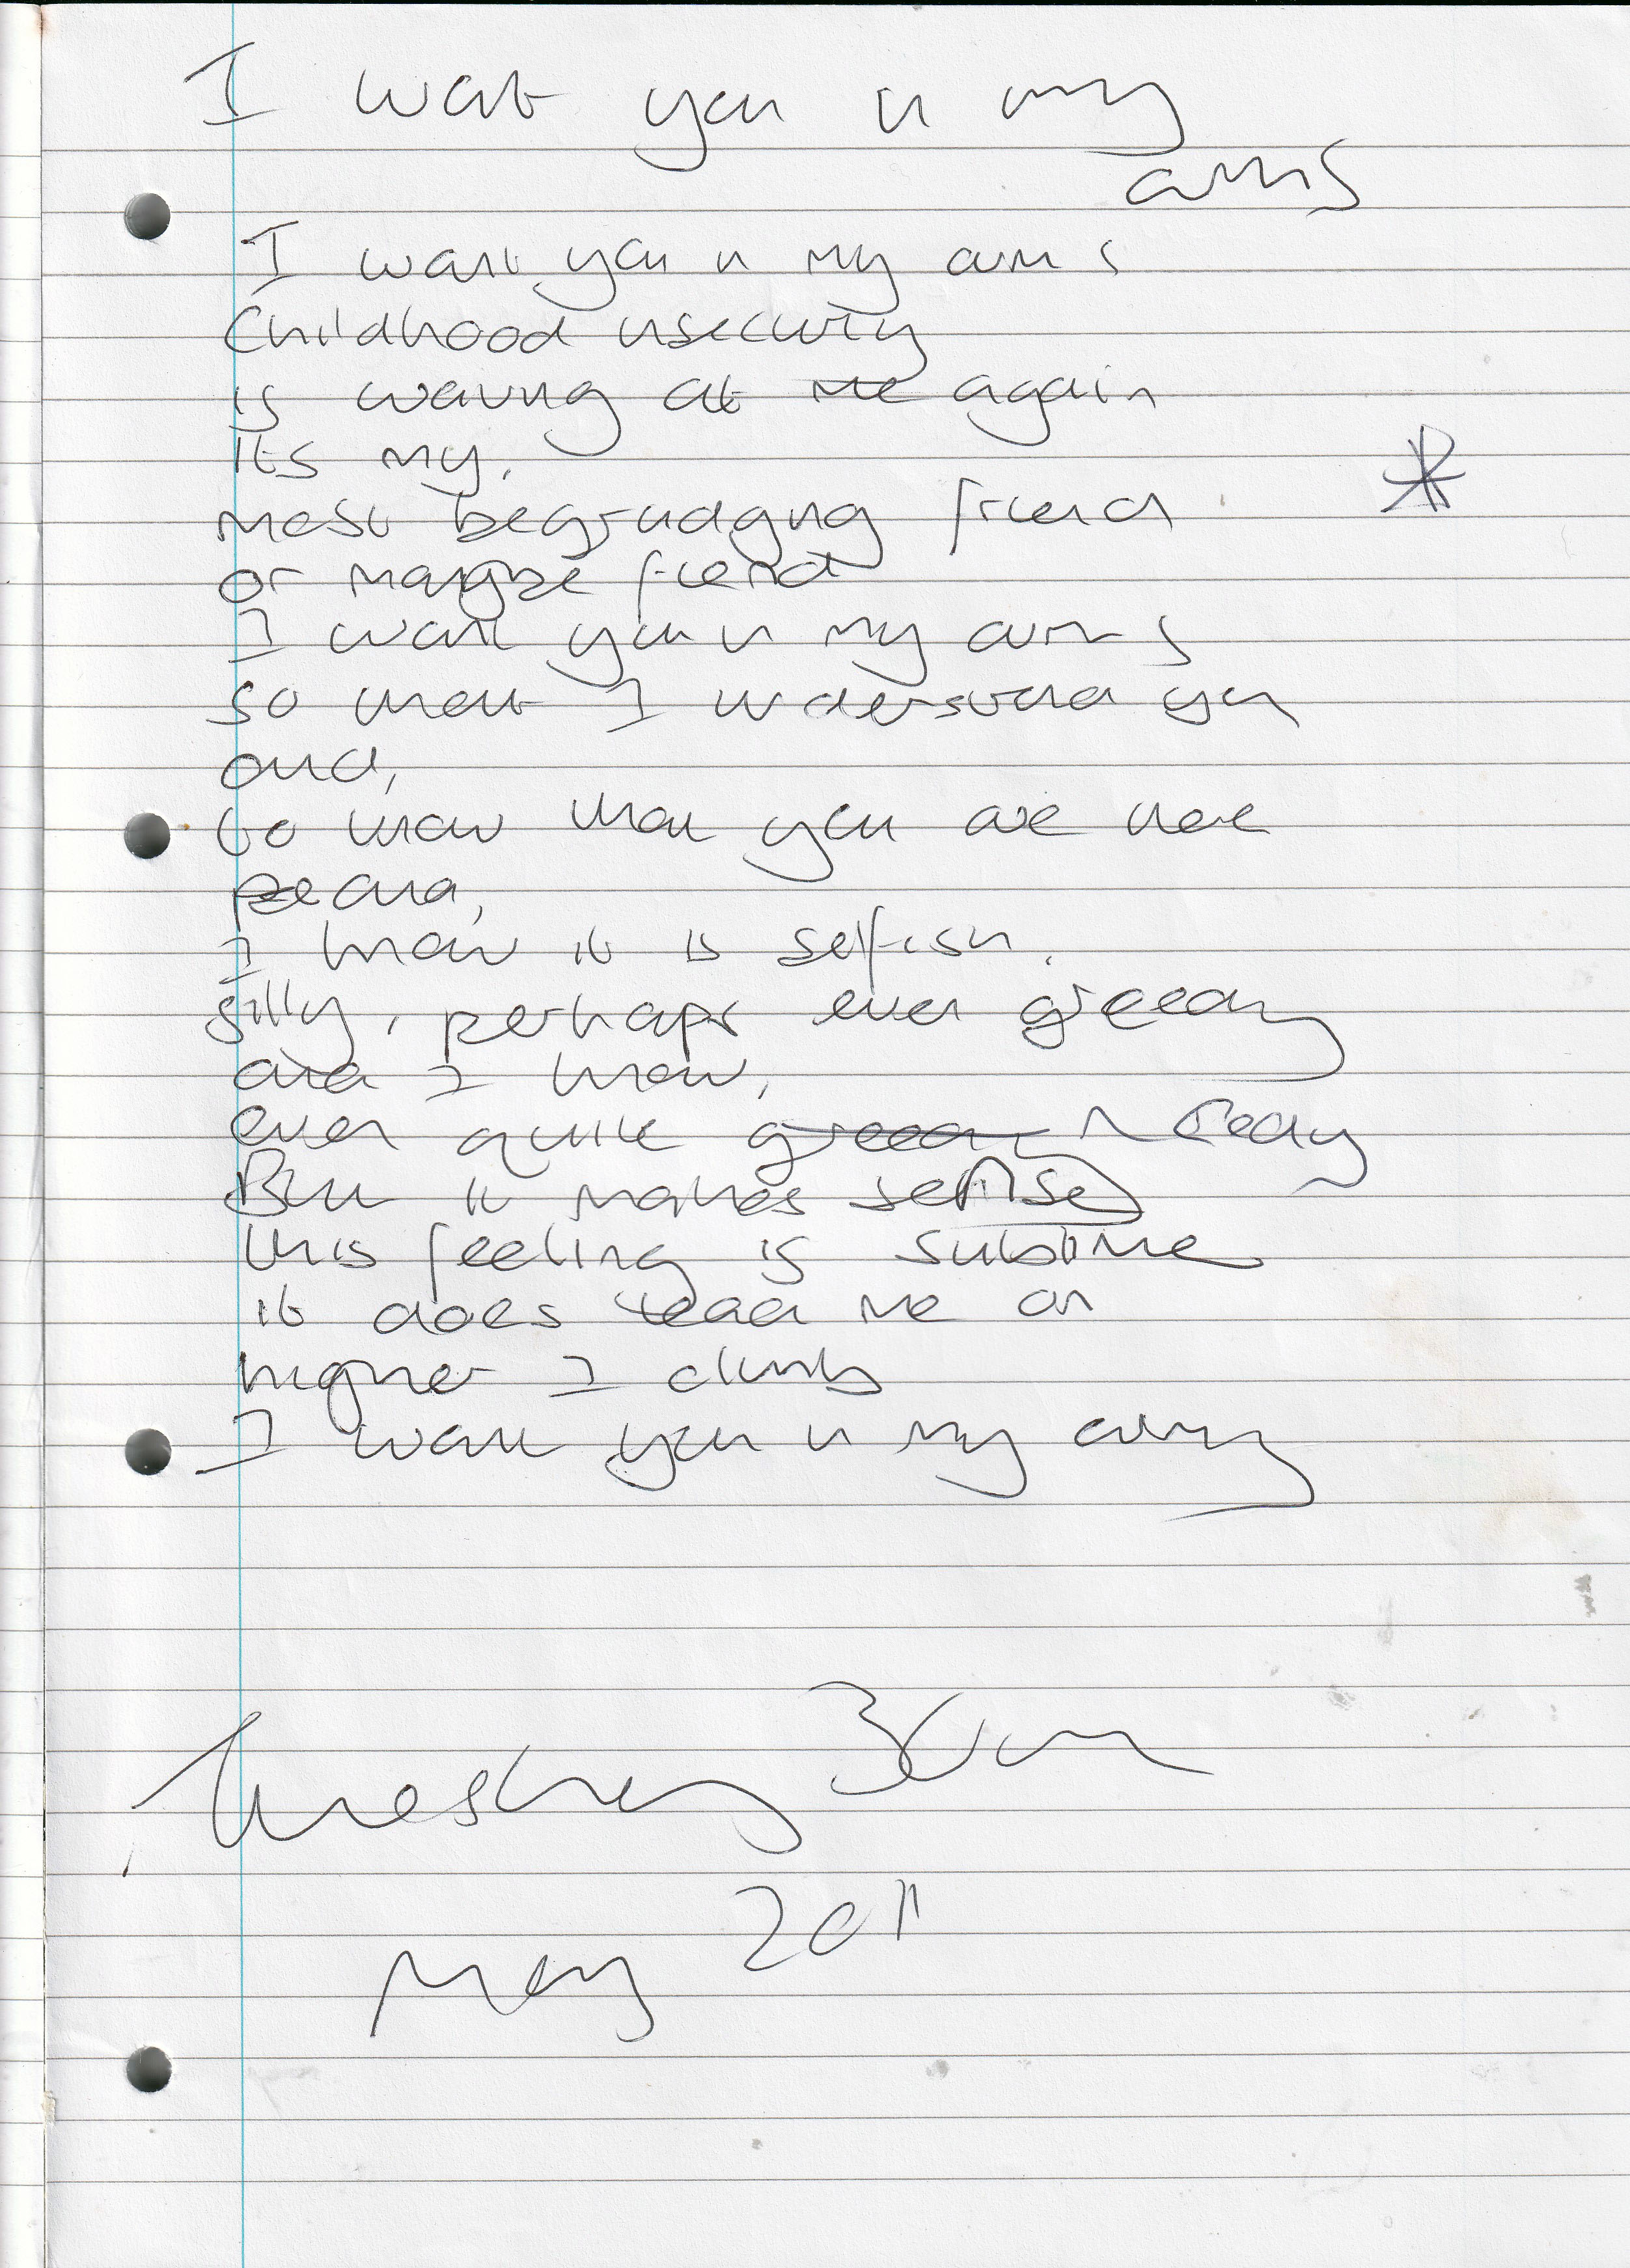 I want you in my
arms
I want you in my arms
Childhood insecurity
is waving at me again
Its my,
most begrudging friend
or maybe fiend
I want you in my arms
so that I understand you
and,
to know that you are here
and,
I know it is selfish,
silly, perhaps even greedy
and I know,
even quite greedy needy
But it makes sense
this feeling is sublime
it does lead me on
higher I climb
I want you in my arms
30
2011
May